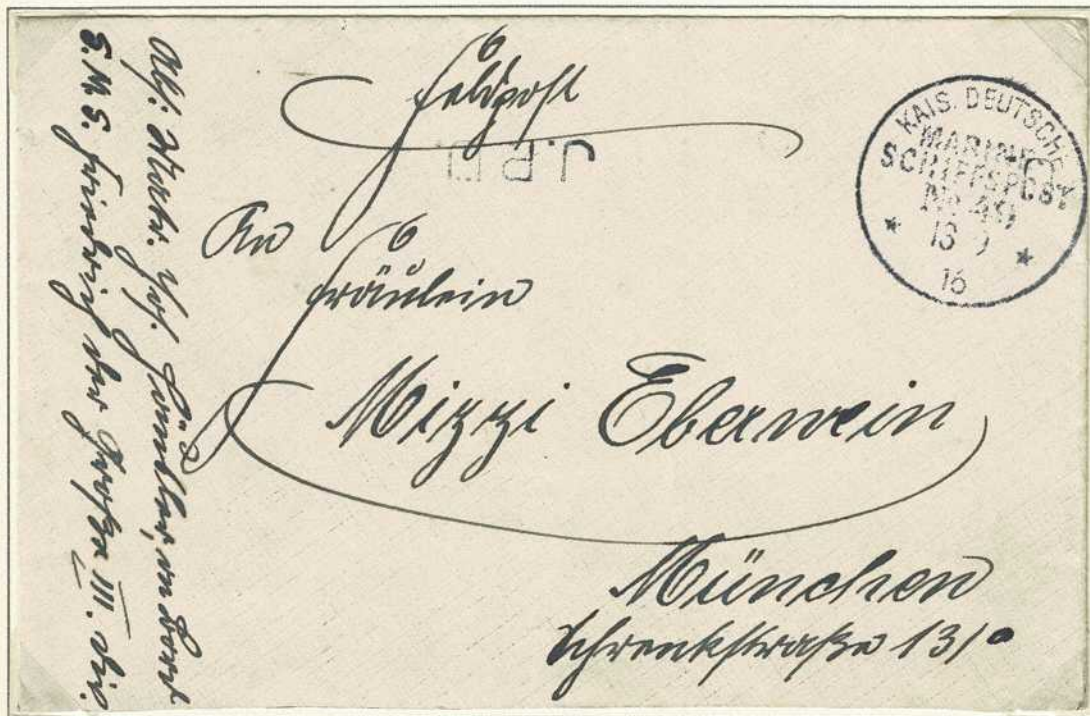 Feldpost
KAIS. DEUTSCHE
MARINE-
SCHIFFSPOST
No 49
13 9
16
An
Fräulein
Mizzi Eberwein
München
Schrenkstraße 13/0
Abs: Matr. Jos. an Bord
S.M.S. Friedrich der Große III. Div.